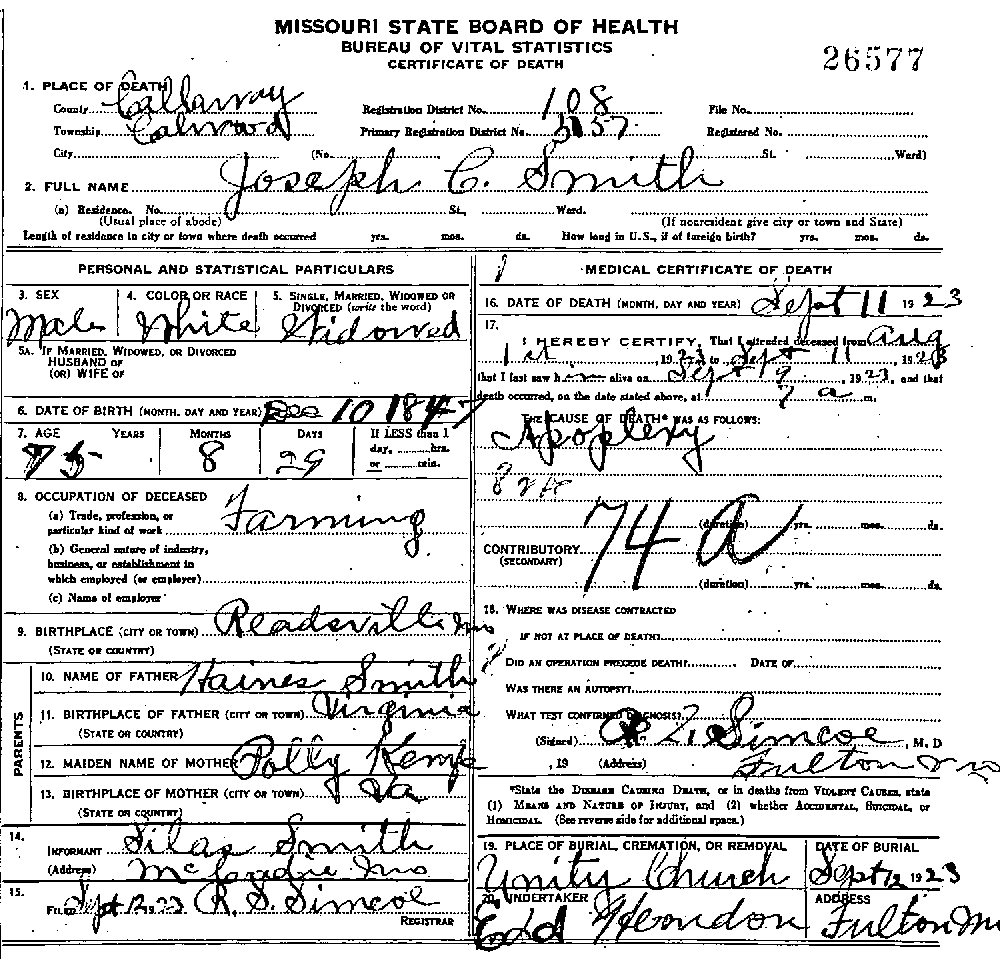 MISSOURI STATE BOARD OF HEALTH
BUREAU OF VITAL STATISTICS
CERTIFICATE OF DEATH
26577
1. PLACE OF DEATH
County Callaway Registration District No. 108 File No.
Township Calwood Primary Registration District No. 3157 Registered No.
City (No. St. Ward)
2. FULL NAME Joseph C. Smith
(a) Residence. No. St., Ward.
(Usual place of abode) (If nonresident give city or town and State)
Length of residence in city or town where death occurred yrs. mos. ds. How long in U.S., if of foreign birth? yrs. mos. ds.
PERSONAL AND STATISTICAL PARTICULARS
3. SEX 4. COLOR OR RACE 5. SINGLE, MARRIED, WIDOWED OR DIVORCED (write the word)
Male White Widowed
5A. IF MARRIED, WIDOWED, OR DIVORCED
HUSBAND OF
(OR) WIFE OF
6. DATE OF BIRTH (MONTH, DAY AND YEAR) Dec 10 1847
7. AGE YEARS MONTHS DAYS If LESS than 1 day, hrs. or min.
75 8 29
8. OCCUPATION OF DECEASED
(a) Trade, profession, or particular kind of work Farming
(b) General nature of industry,
business, or establishment in
which employed (or employer)
(c) Name of employer
9. BIRTHPLACE (CITY OR TOWN) Readsville Mo
(STATE OR COUNTRY)
PARENTS
10. NAME OF FATHER Haines Smith
11. BIRTHPLACE OF FATHER (CITY OR TOWN) Virginia
(STATE OR COUNTRY)
12. MAIDEN NAME OF MOTHER Polly Kemp
13. BIRTHPLACE OF MOTHER (CITY OR TOWN) Va
(STATE OR COUNTRY)
14.
INFORMANT Silas Smith
(Address) McCredie Mo
15.
FILED Sept 12 1923 R. S. Simcoe
REGISTRAR
MEDICAL CERTIFICATE OF DEATH
16. DATE OF DEATH (MONTH, DAY AND YEAR) Sept 11 1923
17.
I HEREBY CERTIFY, That I attended deceased from Aug
1st, 1923 to Sept 11, 1923
that I last saw him alive on Sept 9, 1923, and that
death occurred, on the date stated above, at 7 a m.
THE CAUSE OF DEATH* WAS AS FOLLOWS:
Apoplexy
74 a
(duration) yrs. mos. ds.
CONTRIBUTORY
(SECONDARY)
(duration) yrs. mos. ds.
18. WHERE WAS DISEASE CONTRACTED
IF NOT AT PLACE OF DEATH?
DID AN OPERATION PRECEDE DEATH? DATE OF
WAS THERE AN AUTOPSY?
WHAT TEST CONFIRMED DIAGNOSIS?
(Signed) Simcoe, M. D
, 19 (Address) Fulton Mo
*State the DISEASE CAUSING DEATH, or in deaths from VIOLENT CAUSES, state
(1) MEANS AND NATURE OF INJURY, and (2) whether ACCIDENTAL, SUICIDAL, or
HOMICIDAL. (See reverse side for additional space.)
19. PLACE OF BURIAL, CREMATION, OR REMOVAL DATE OF BURIAL
Unity Church Sept 12 1923
20. UNDERTAKER ADDRESS
Ed Herndon Fulton Mo